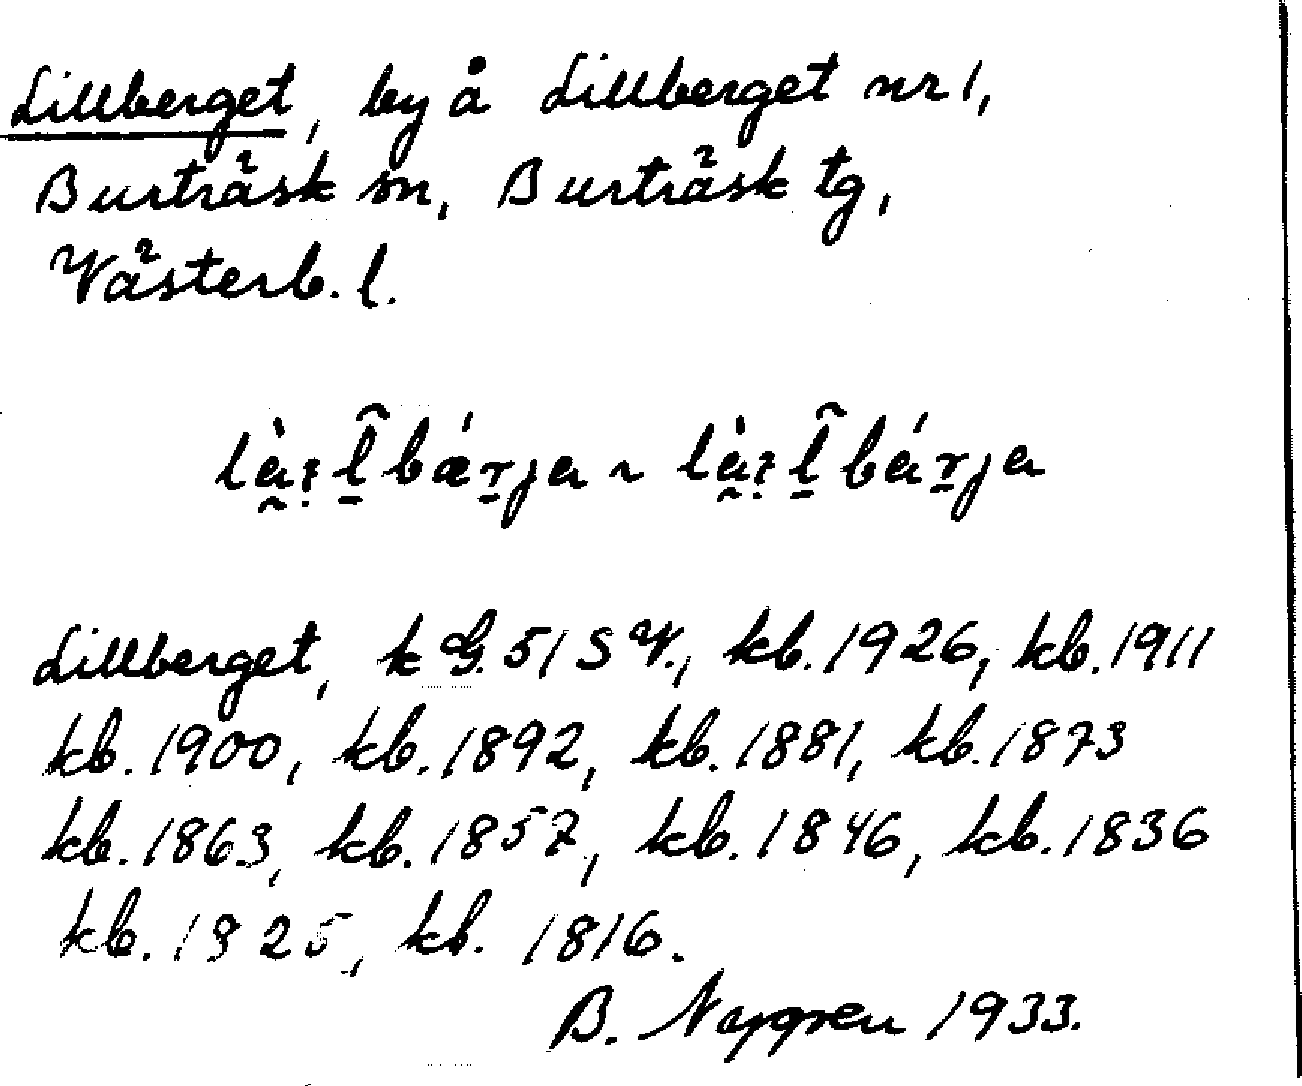 Lillberget, by å Lillberget nr 1,
Burträsk sn, Burträsk tg,
Västerb. l.
Lillberget, k G. 51 S V., kb. 1926, kb. 1911
kb. 1900, kb. 1892, kb. 1881, kb. 1873
kb. 1863, kb. 1857, kb. 1846, kb. 1836
kb. 1825, kb. 1816.
B. Nygren 1933.